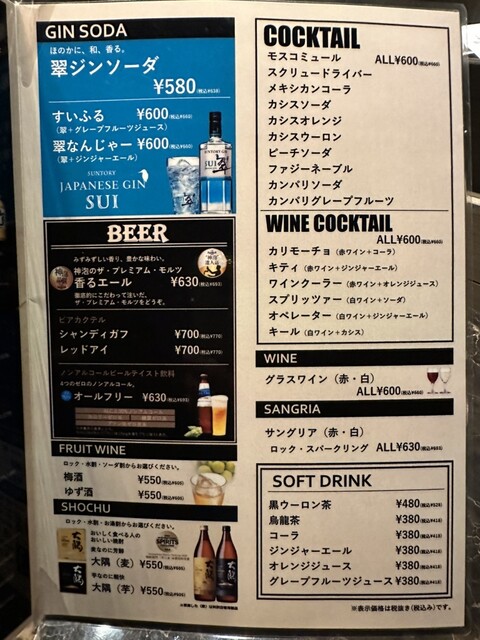 GIN SODA
ほのかに、和、香る。
翠ジンソーダ
¥580(税込¥638)
すいふる ¥600(税込¥660)
(翠+グレープフルーツジュース)
翠なんじゃー ¥600(税込¥660)
(翠+ジンジャーエール)
SUNTORY
JAPANESE GIN
SUI
SUNTORY GIN
SUI
翠
BEER
みずみずしい香り、豊かな味わい。
神泡のザ・プレミアム・モルツ
香るエール ¥630(税込¥693)
徹底的にこだわって注いだ、
ザ・プレミアム・モルツをどうぞ。
ビアカクテル
シャンディガフ ¥700(税込¥770)
レッドアイ ¥700(税込¥770)
ノンアルコールビールテイスト飲料
4つのゼロのノンアルコール。
オールフリー ¥630(税込¥693)
FRUIT WINE
ロック・水割・ソーダ割からお選びください。
梅酒 ¥550(税込¥605)
ゆず酒 ¥550(税込¥605)
SHOCHU
ロック・水割・お湯割からお選びください。
おいしく食べる人の
おいしい焼酎
麦なのに芳醇
大隅(麦)¥550(税込¥605)
芋なのに軽快
大隅(芋)¥550(税込¥605)
大隅
大隅
SPIRITS
COCKTAIL
ALL¥600(税込¥660)
モスコミュール
スクリュードライバー
メキシカンコーラ
カシスソーダ
カシスオレンジ
カシスウーロン
ピーチソーダ
ファジーネーブル
カンパリソーダ
カンパリグレープフルーツ
WINE COCKTAIL
ALL¥600(税込¥660)
カリモーチョ(赤ワイン+コーラ)
キティ(赤ワイン+ジンジャーエール)
ワインクーラー(赤ワイン+オレンジジュース)
スプリッツァー(白ワイン+ソーダ)
オペレーター(白ワイン+ジンジャーエール)
キール(白ワイン+カシス)
WINE
グラスワイン(赤・白)
ALL¥600(税込¥660)
SANGRIA
サングリア(赤・白)
ロック・スパークリング ALL¥630(税込¥693)
SOFT DRINK
黒ウーロン茶 ¥480(税込¥528)
烏龍茶 ¥380(税込¥418)
コーラ ¥380(税込¥418)
ジンジャーエール ¥380(税込¥418)
オレンジジュース ¥380(税込¥418)
グレープフルーツジュース ¥380(税込¥418)
※表示価格は税抜き(税込み)です。